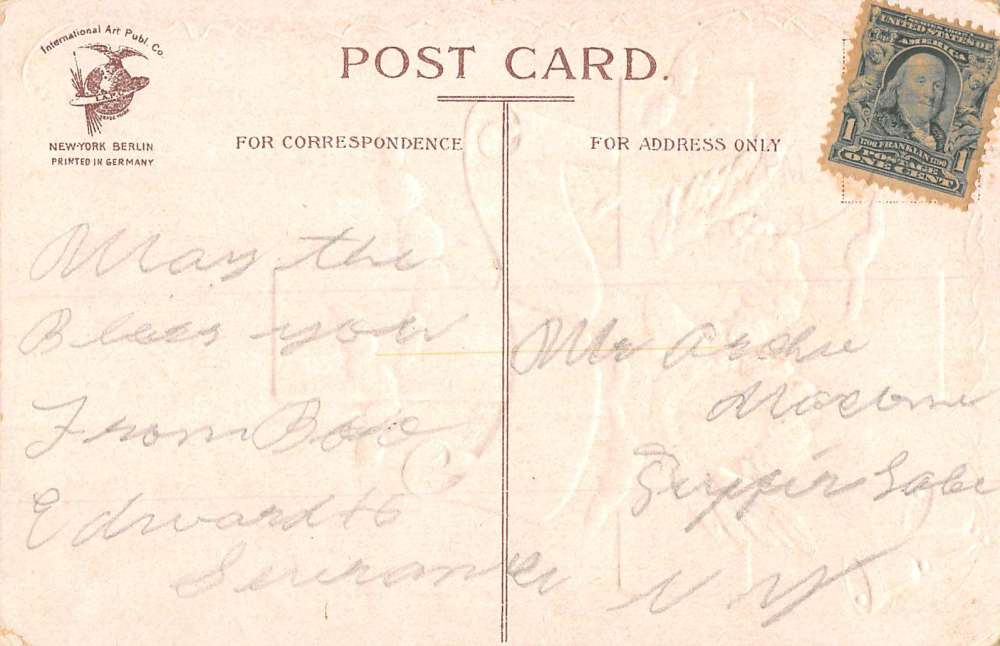 International Art Publ. Co.
I.A.P.
TRADE MARK
NEW-YORK BERLIN
PRINTED IN GERMANY
POST CARD.
FOR CORRESPONDENCE
FOR ADDRESS ONLY
UNITED STATES OF
AMERICA
1706 FRANKLIN 1790
1 POSTAGE 1
ONE CENT
May the
Bless you
From
Edward
Mr Archie
N Y